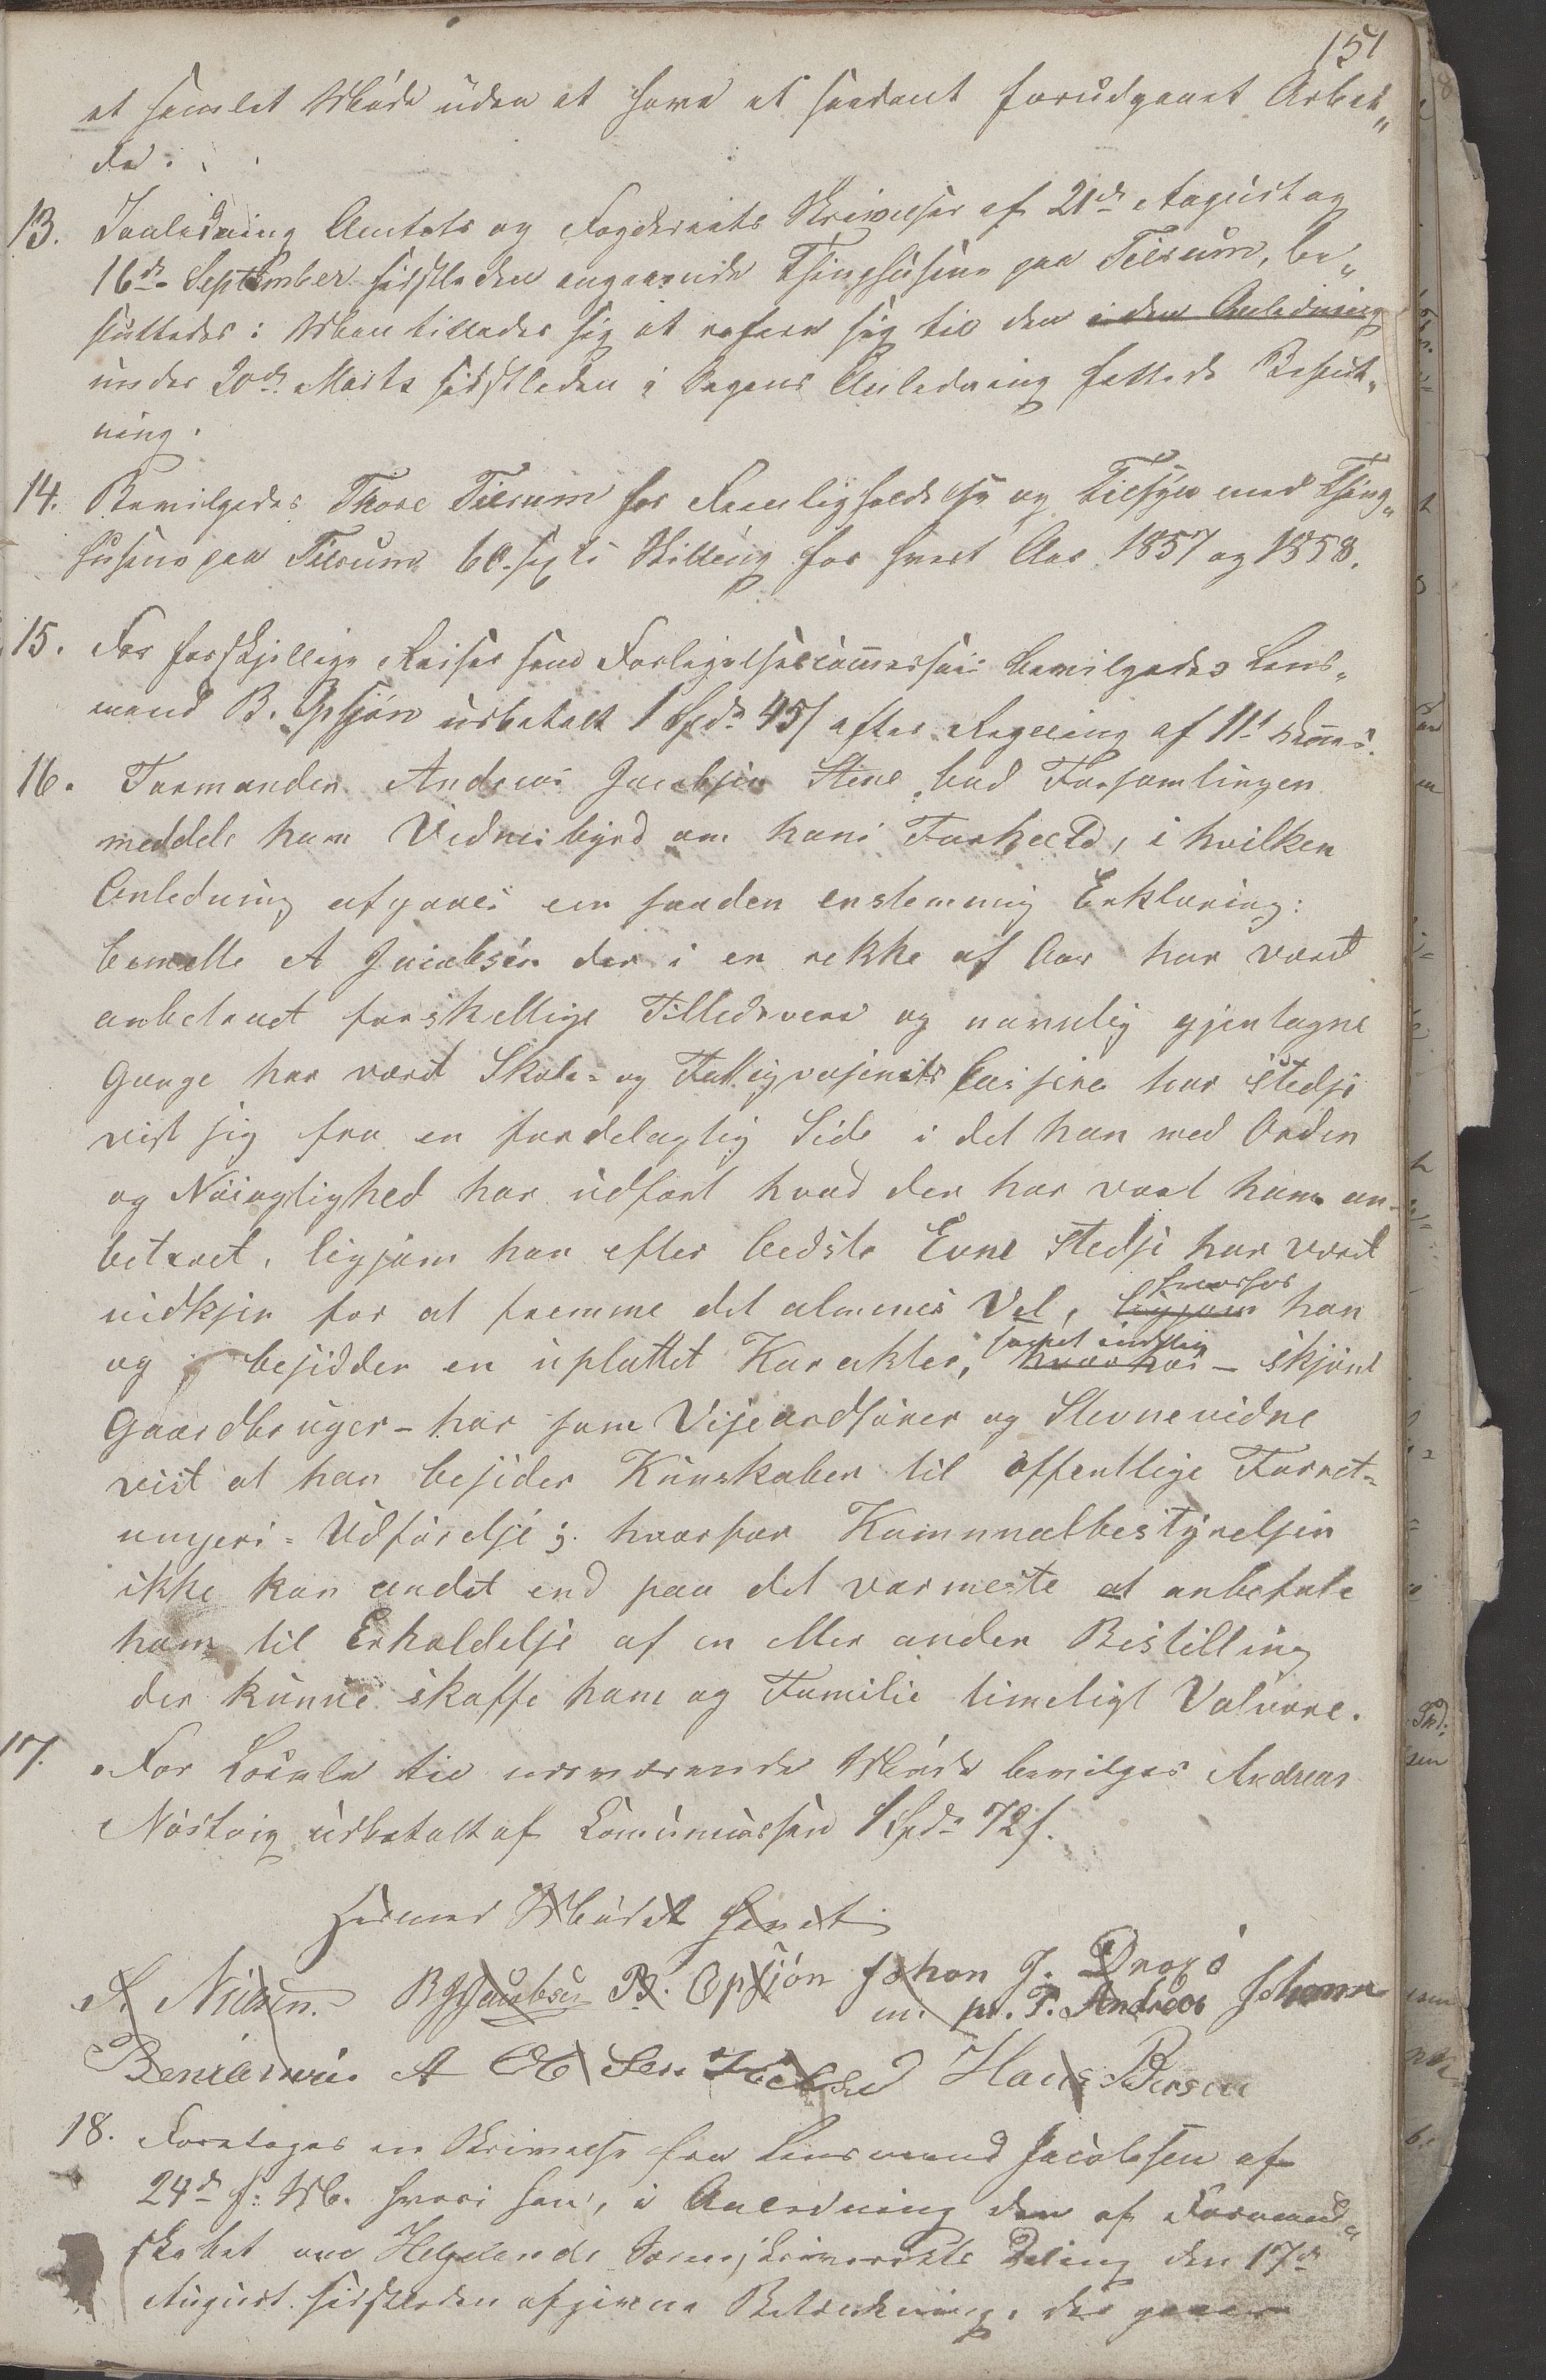 151
et samlet Møde uden at have et saadant forudgaaet Arbei„
de.
13. I Anledning Amtets og Fogderiets Skrivelser af 21de August og
16de September sidstleden angaaende Thinghusene paa Tilrum, be„
sluttedes: Man tillader sig at referere sig til den i den Anledning
under 20de Marts sidstleden i Sagens Anledning fattede Beslut„
ning.
14. Bevilgedes Thore Tilrum for Reenligholdelse og Tilsyn med Thing„
husene paa Tilrum 60 - sexti Skilling for hvert Aar 1857 og 1858.
15. For forskjellige Reiser som Forligelsescommissair bevilgedes Lens„
mand B. Opsjøn udbetalt 1 Spd. 45 s efter Regning af 11te dennes.
16. Formanden Andreas Jacobsen Stene bad Forsamlingen
meddele ham Vidnesbyrd om hans Forhold, i hvilken
Anledning afgaves en saaden enstemmig Erklæring:
bemelte A Jacobsen der i en rekke af Aar har været
anbetroet forskellige Tilledsverv og navnlig gjentagne
Gange har været Skole- og Fattigvæsenets Casserer har stedse
vist sig fra en fordelagtig Side i det han med Orden
og Nøiagtighed har udført hvad der har vært ham an-
betroet, ligsom han efter bedste Evne stedse har været
nidkjer for at fremme det almenes Vel, ligesom hvorhos han
og besidder en uplettet Karakter, hvorhos samt endelig - skjønt
Gaardbruger - har som Viseordfører og Stevnevidne
vist at han besider Kunskaber til offentlige Forret-
ningers - Udførelse; hvorfor Komunalbestyrelsen
ikke kan andet end paa det varmeste at anbefale
ham til Erholdelse af en eller anden Bestilling
der kunne skaffe ham og Familie timeligt Velvære.
17. For Locale til nærværende Møde bevilges Andreas
Nøstvig udbetalt af Comunecassen 1 Spd. 72 s.
Hermed Mødet hævet
S. Nielsen. B Jacobsen B. Opsjøn Johan J. Dragø
m. p. P. Andreas Johann
Beniamin A Ol Hans Bersen
18. Foretoges en Skrivelse fra Lensmand Jacobsen af
24de f: M. hvori han, i Anledning den af Formand„
skabet om Helgelands Sorenskriveries Deling den 17de
August sidstleden afgivne Betænkning,